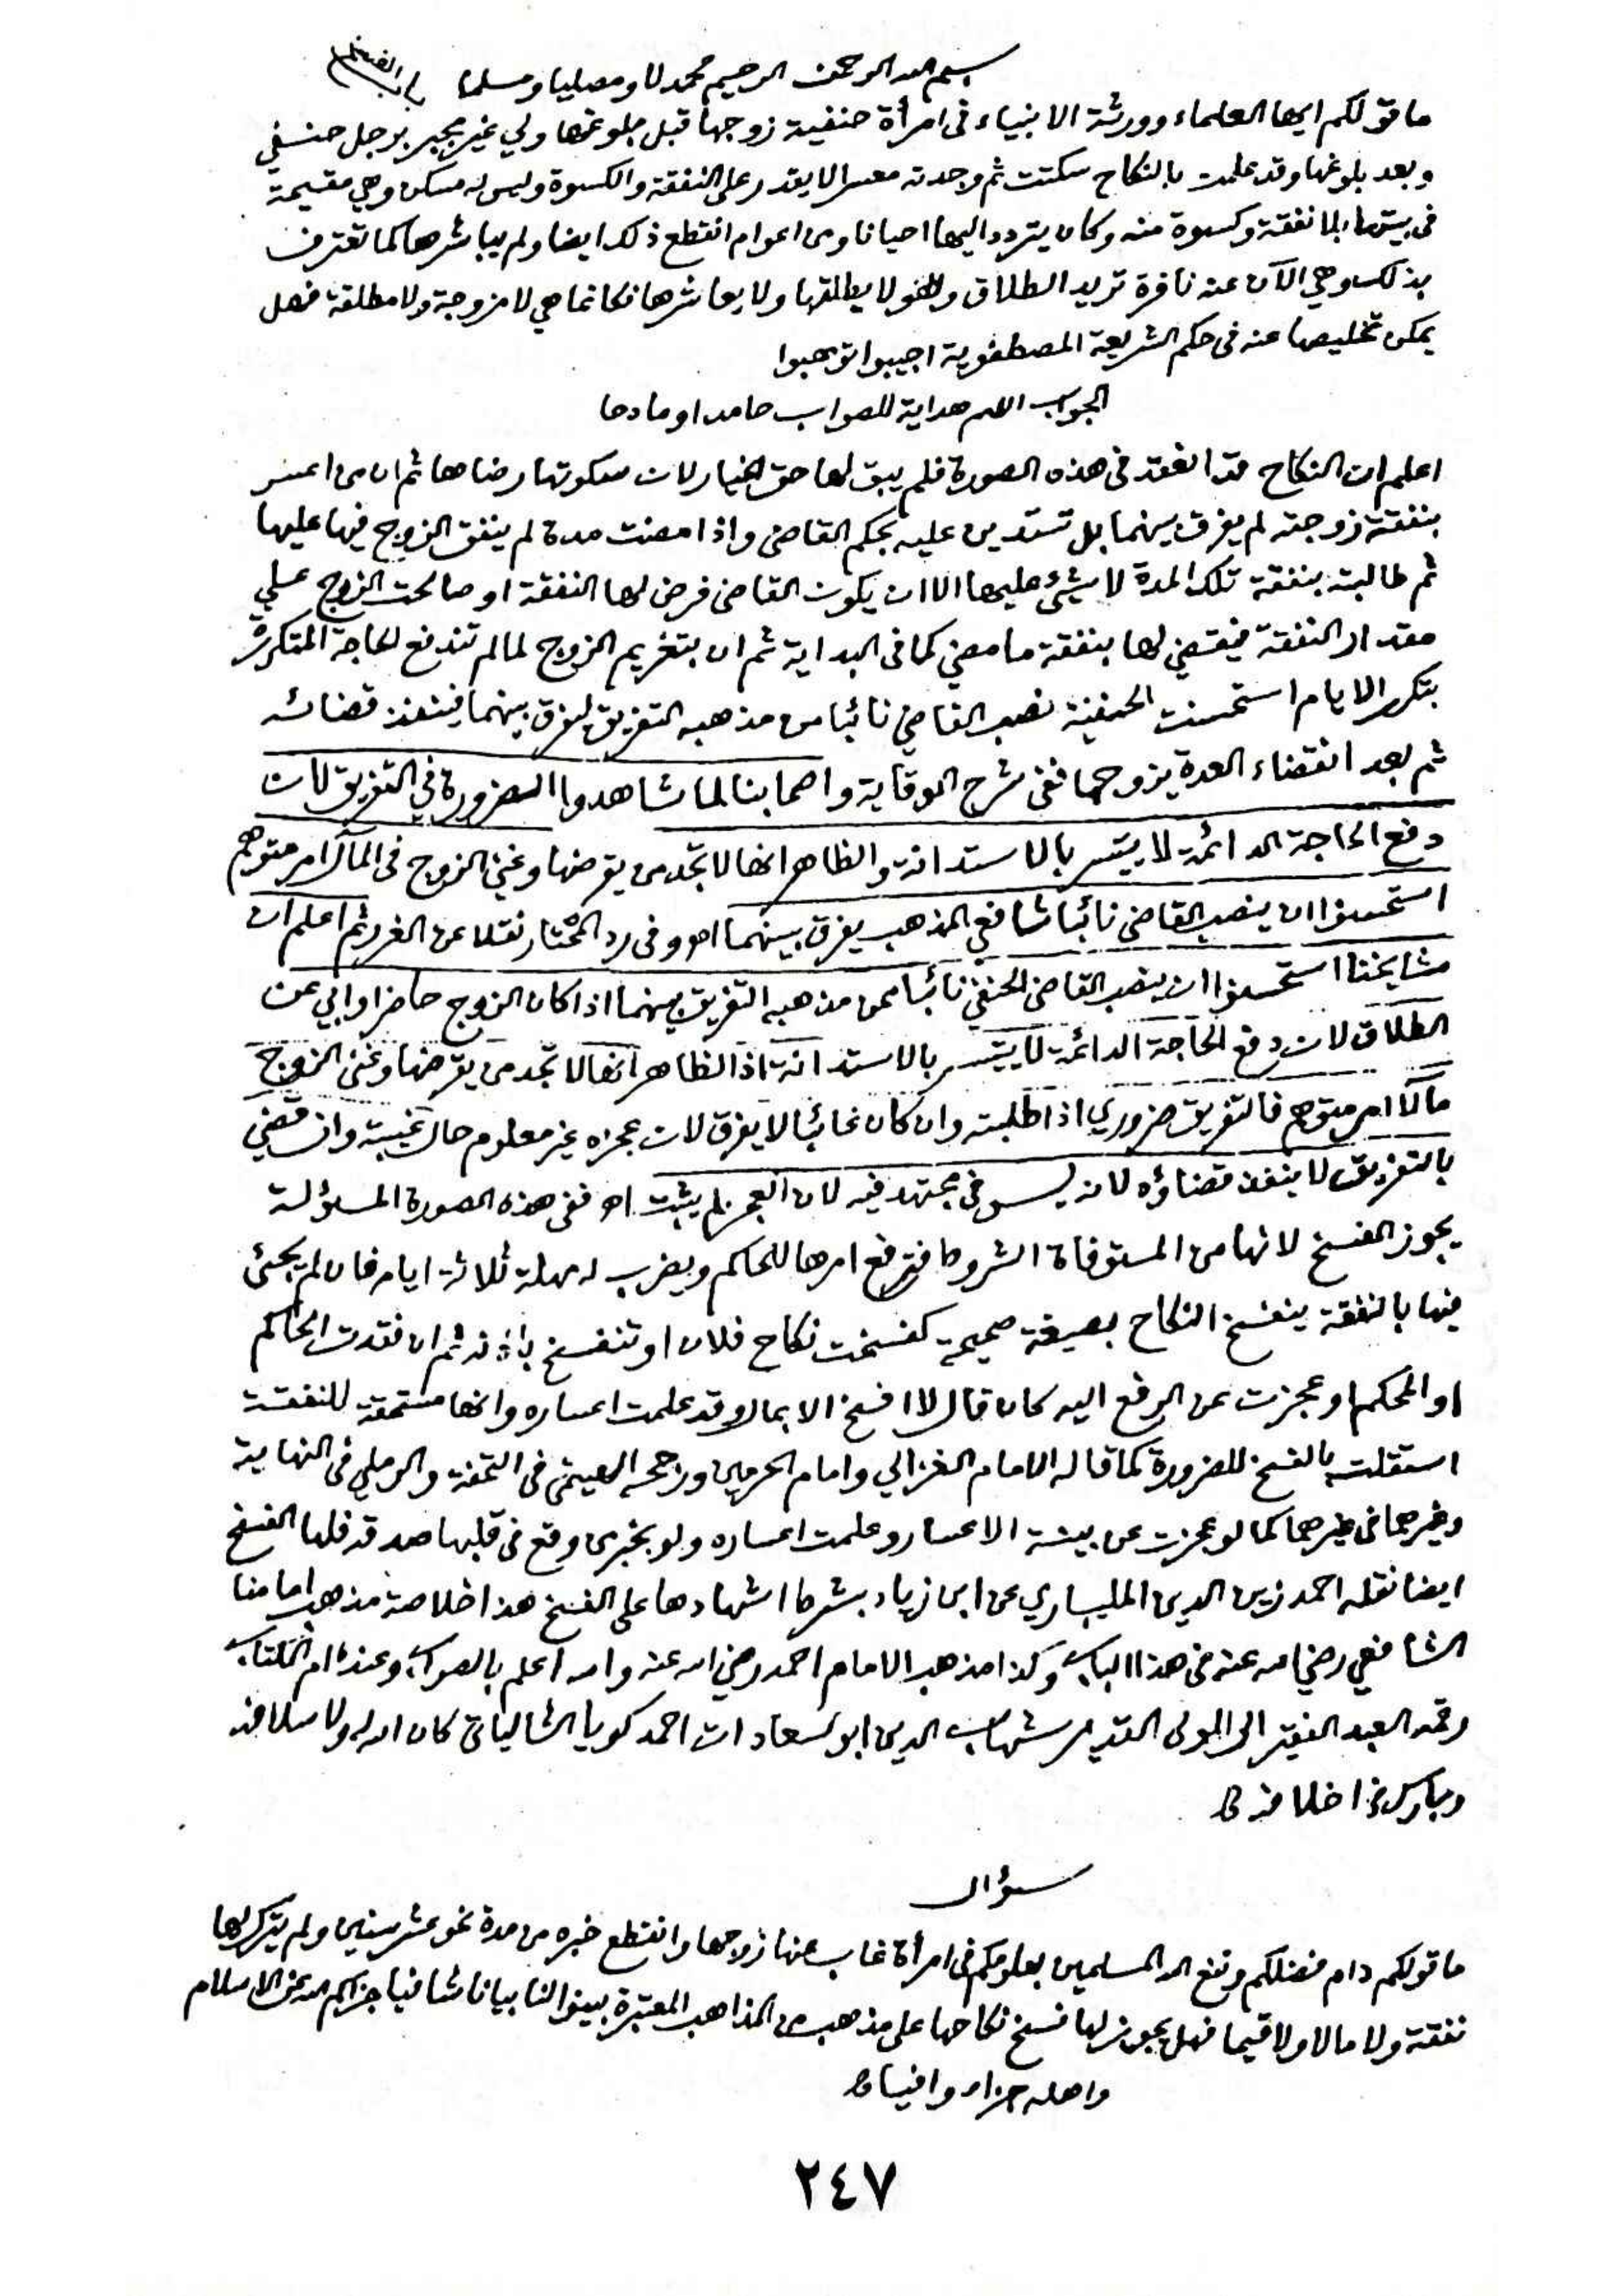 بسم الله الرحمن الرحيم محمدلا ومصليا ومسلما باب الفسخ
ما قولكم ايها العلماء وورثة الانبياء فى امرأة حنفية زوجها قبل بلوغها ولي غير مجبر برجل حنفي
وبعد بلوغها وقد علمت بالنكاح سكتت ثم وجدته معسرا لا يقدر على النفقة والكسوة وليس له مسكن وهي مقيمة
فى بيتها بلا نفقة وكسوة منه وكان يتردد اليها احيانا ومن اعوام انقطع ذلك ايضا ولم يباشرها كما تعترف
بذلك وهي الآن عنه نافرة تريد الطلاق وهو لا يطلقها ولا يعاشرها فكانما هي لا مزوجة ولا مطلقة فهل
يمكن تخليصها عنه فى حكم الشريعة المصطفوية اجيبوا توهبوا
الجواب اللهم هداية للصواب حامدا ومادحا
اعلم ان النكاح قد انعقد فى هذه الصورة فلم يبق لها حق الخيار لان سكوتها رضاها ثم ان من اعسر
بنفقة زوجته لم يفرق بينهما بل تستدين عليه بحكم القاضى واذا مضت مدة لم ينفق الزوج فيها عليها
ثم طالبته بنفقة تلك المدة لا شئ عليها الا ان يكون القاضى فرض لها النفقة او صالحت الزوج على
مقدار النفقة فيقضي لها بنفقة ما مضى كما فى البداية ثم ان بتغريم الزوج لما لم تندفع الحاجة المتكررة
بتكرر الايام استحسنت الحنفية نصب القاضي نائبا من مذهبه التفريق ليفرق بينهما فينفذ قضائه
ثم بعد انقضاء العدة يزوجها ففى شرح الوقاية واصحابنا لما شاهدوا الضرورة في التفريق لان
دفع الحاجة الدائمة لا يتيسر بالاستدانة والظاهر انها لا تجد من يقرضها وغنى الزوج فى المآل امر متوهم
استحسنوا ان ينصب القاضى نائبا شافعي المذهب يفرق بينهما اهـ وفى رد المحتار نقلا عن الغرر ثم اعلم ان
مشايخنا استحسنوا ان ينصب القاضى الحنفي نائبا ممن مذهبه التفريق بينهما اذا كان الزوج حاضرا وابي عن
الطلاق لان دفع الحاجة الدائمة لا يتيسر بالاستدانة اذ الظاهر انها لا تجد من يقرضها وغنى الزوج
مآلا امر متوهم فالتفريق ضروري اذا طلبته وان كان غائبا لا يفرق لان عجزه غير معلوم حال غيبته وان قضي
بالتفريق لا ينفذ قضاؤه لانه ليس فى مجتهد فيه لان العجز لم يثبت اهـ ففى هذه الصورة المسئولة
يجوز الفسخ لانها من المستوفاة الشروط فترفع امرها للحاكم ويضرب له مهلة ثلاثة ايام فان لم يجئ
فيها بالنفقة ينفسخ النكاح بصيغة صحيحة كفسخت نكاح فلان او تنفسخ باذنه ثم ان فقدت الحاكم
او المحكم او عجزت عن الرفع اليه كان قال لا افسخ الا بمال وقد علمت اعساره وانها مستحقة للنفقة
استقلت بالفسخ للضرورة كما قاله الامام الغزالي وامام الحرمين ورجحه الهيتمى فى التحفة والرملي فى النهاية
وغيرهما فى غيرهما كما لو عجزت عن بينة الاعسار وعلمت اعساره ولو بخبر من وقع فى قلبها صدقه فلها الفسخ
ايضا نقله احمد زين الدين المليباري عن ابن زياد بشرط اشهادها على الفسخ هذا خلاصة مذهب امامنا
الشافعي رضي الله عنه فى هذا الباب وكذا مذهب الامام احمد رضي الله عنه والله اعلم بالصواب وعنده ام الكتاب
رقمه العبد الفقير الى المولى القدير شهاب الدين ابو السعادات احمد كويا الشالياتى كان الله له ولاسلافه
وبارك فى اخلافه
سؤال
ما قولكم دام فضلكم ونفع الله المسلمين بعلومكم فى امرأة غاب عنها زوجها وانقطع خبره من مدة نحو عشر سنين ولم يترك لها
نفقة ولا مالا ولا قيما فهل يجوز لها فسخ نكاحها على مذهب من المذاهب المعتبرة بينوا لنا بيانا شافيا جزاكم الله عن الاسلام
واهله جزاء وافيا
٢٤٧